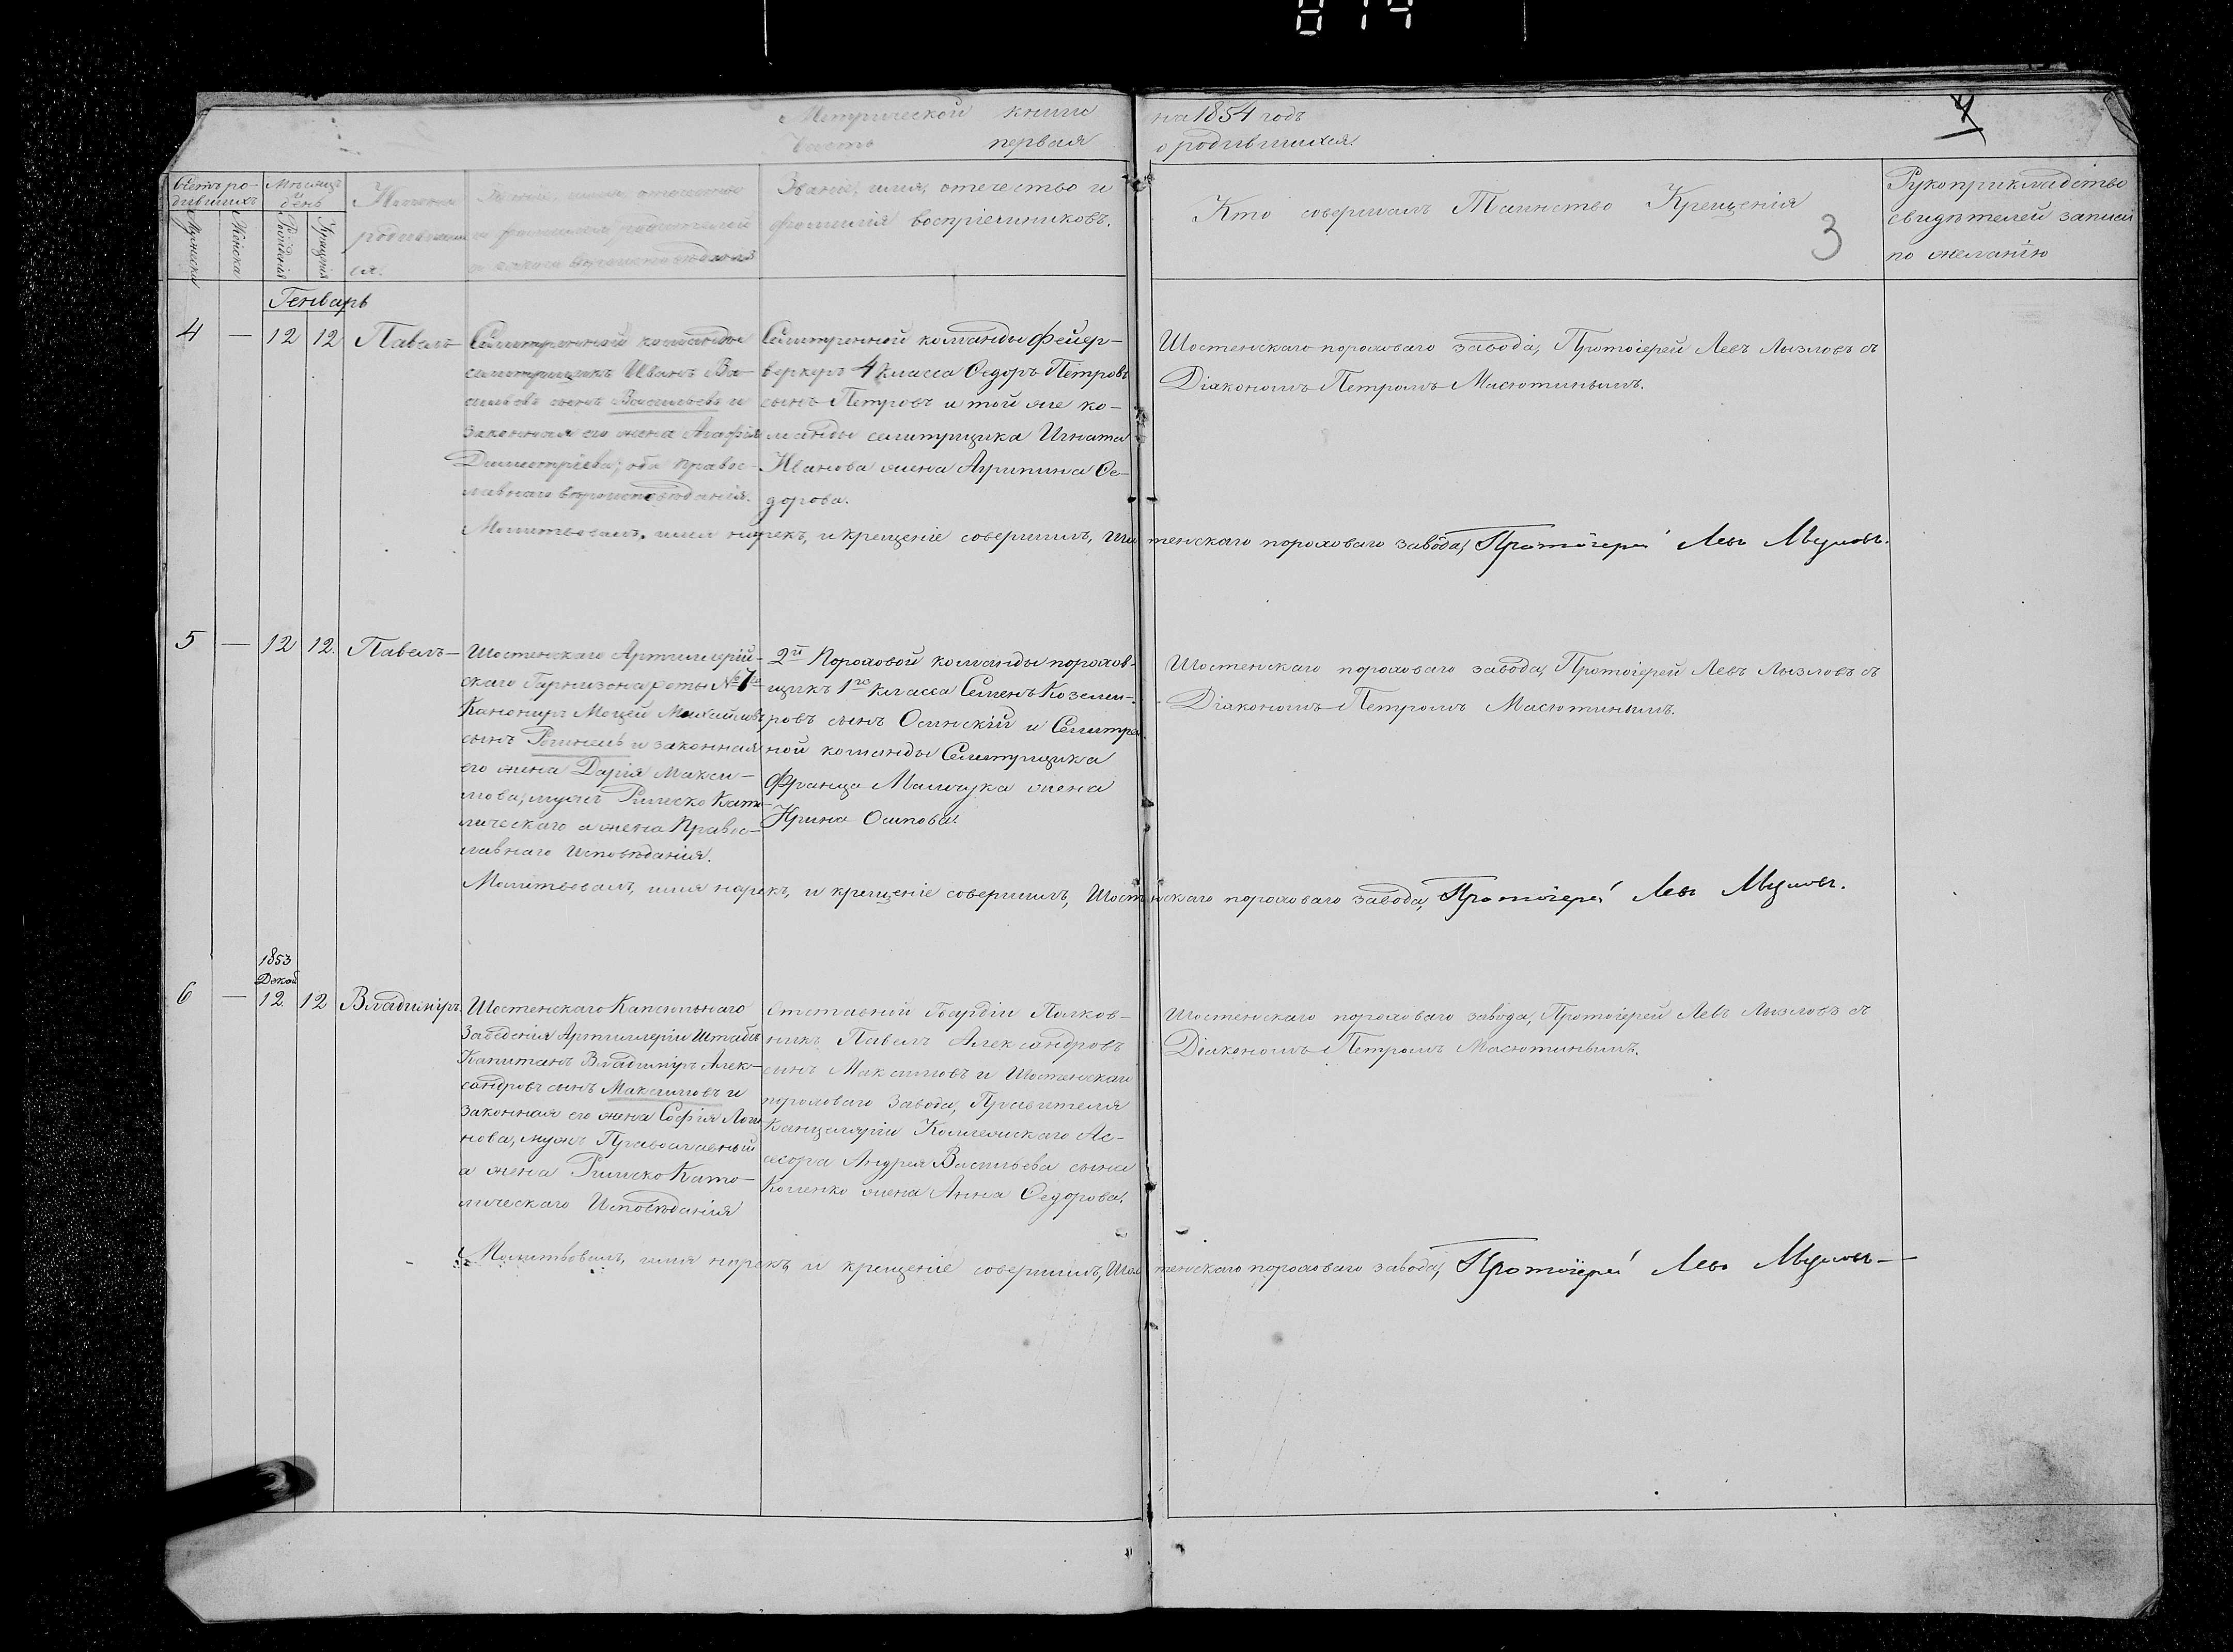 074
Метрической книги на 1854 годъ
Часть первая о родившихся.
4
3
Счетъ ро-
дившихъ
Мужеска
Женска
Мѣсяцъ
и
день
Рожденія
Крещенія
Имена
родивших
ся.
Званіе, имя, отечество
и фамилія родителей
и какого вѣроисповѣданія
Званіе, имя, отечество и
фамилія воспріемниковъ.
Кто совершалъ Таинство Крещенія
Рукоприкладство
свидѣтелей записи
по желанію
Генварь
4 — 12 12 Павелъ
Селитренной команды
селитрщикъ Иванъ Ва-
сильевъ сынъ Васильевъ и
законная его жена Агафія
Димитріева; оба правос-
лавнаго вѣроисповѣданія.
Селитренной команды фейер-
веркеръ 4 класса Ѳедоръ Петровъ
сынъ Петровъ и той же ко-
манды селитрщика Игната
Иванова жена Агрипина Ѳе-
дорова.
Шостенскаго пороховаго завода, Протоіерей Левъ Лызловъ съ
Діакономъ Петромъ Масютинымъ.
Молитвовалъ, имя нарекъ, и крещеніе совершилъ, Шостенскаго пороховаго завода, Протоіерей Левъ Лызловъ.
5 — 12 12. Павелъ
Шостенскаго Артиллерій-
скаго Гарнизона роты № 7го
Канониръ Моцей Михайловъ
сынъ и законная
его жена Дарія Макси-
мова, мужъ Римско Като-
лическаго а жена Правос-
лавнаго Исповѣданія.
2й Пороховой команды порохов-
щикъ 1го класса Семенъ Коземи-
ровъ сынъ Осинскій и Селитре
ной команды Селитрщика
Франца жена
Ирина Осипова.
Шостенскаго пороховаго завода, Протоіерей Левъ Лызловъ съ
Діакономъ Петромъ Масютинымъ.
Молитвовалъ, имя нарекъ, и крещеніе совершилъ, Шостенскаго пороховаго завода, Протоіерей Левъ Лызловъ.
1853
Декаб
6 — 12 12 Владиміръ
Шостенскаго Капсюльнаго
Заведенія Артиллеріи Штабсъ
Капитанъ Владиміръ Алек-
сандровъ сынъ Максимовъ и
законная его жена Софія Логи
нова, мужъ Православный
а жена Римско Като-
лическаго Исповѣданія
Отставной Гвардіи Полков-
никъ Павелъ Александровъ
сынъ Максимовъ и Шостенскаго
пороховаго Завода, Правителя
Канцеляріи Коллежскаго Ас-
сесора Андрея Васильева сына
Коленко жена Анна Ѳедорова.
Шостенскаго пороховаго завода, Протоіерей Левъ Лызловъ съ
Діакономъ Петромъ Масютинымъ.
Молитвовалъ, имя нарекъ и крещеніе совершилъ, Шостенскаго пороховаго завода, Протоіерей Левъ Лызловъ